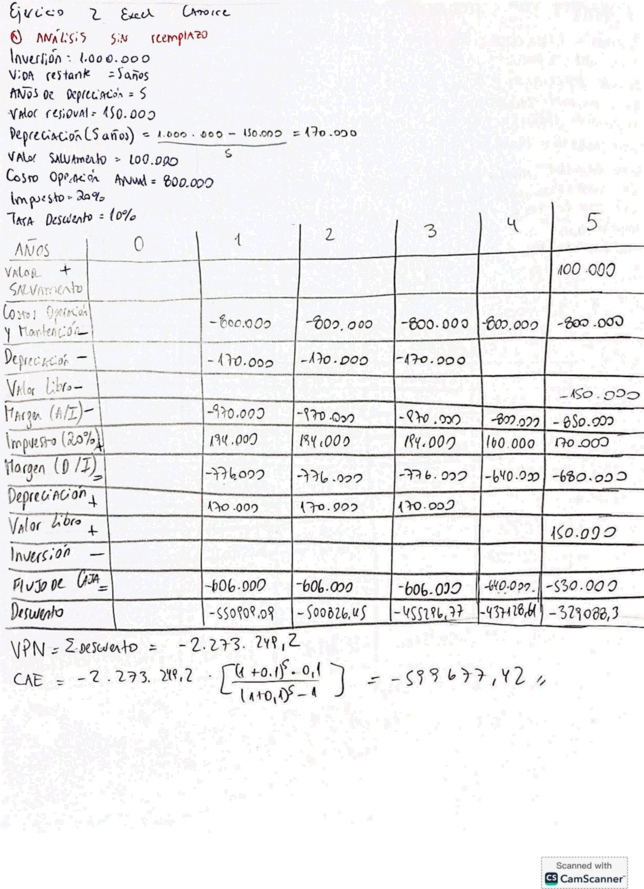 Ejercicio 2 Excel Catorce
① ANÁLISIS SIN REEMPLAZO
Inversión: 1.000.000
VIDA restante = 5 años
AÑOS DE Depreciación = 5
Valor residual = 150.000
Depreciación (5 años) = 1.000.000 - 150.000 / 5 = 170.000
VALOR SALVAMENTO = 100.000
Costo Operación Anual = 800.000
Impuesto = 20%
TASA Descuento = 10%
AÑOS 0 1 2 3 4 5
VALOR + SALVAMENTO 100.000
Costos Operación y Mantención - -800.000 -800.000 -800.000 -800.000 -800.000
Depreciación - -170.000 -170.000 -170.000
Valor Libro - -150.000
Margen (A/I) - -970.000 -970.000 -970.000 -800.000 -850.000
Impuesto (20%) + 194.000 194.000 194.000 160.000 170.000
Margen (D/I) = -776.000 -776.000 -776.000 -640.000 -680.000
Depreciación + 170.000 170.000 170.000
Valor Libro + 150.000
Inversión -
FLUJO DE CAJA = -606.000 -606.000 -606.000 -640.000 -530.000
Descuento -550909,09 -500826,45 -455296,77 -437128,61 -329088,3
VPN = Σ Descuento = -2.273.249,2
CAE = -2.273.249,2 · [(1+0.1)⁵ · 0,1 / (1+0,1)⁵ - 1] = -599677,42 //
Scanned with
CS CamScanner